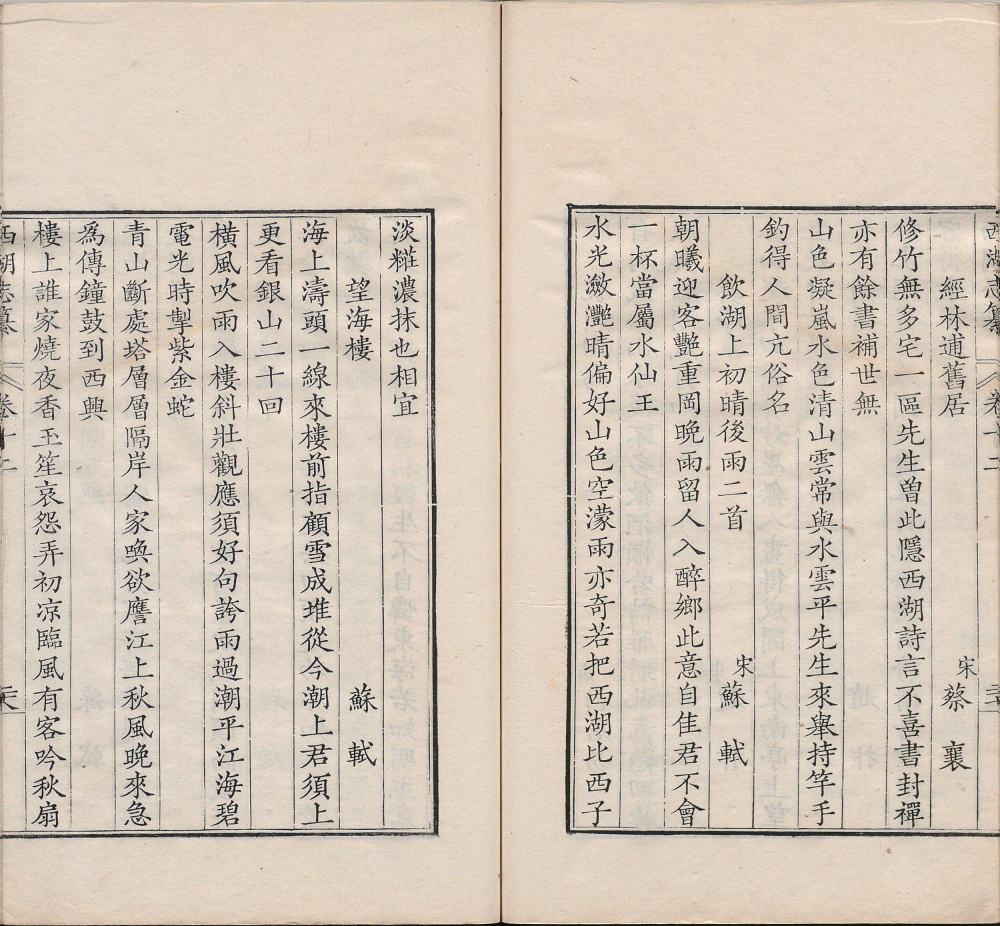 西湖志纂
卷十二
經林逋舊居
宋蔡襄
修竹無多宅一區先生曾此隱西湖詩言不喜書封禪
亦有餘書補世無
山色凝嵐水色清山雲常與水雲平先生來舉持竿手
釣得人間亢俗名
飲湖上初晴後雨二首
宋蘇軾
朝曦迎客艷重岡晚雨留人入醉鄉此意自佳君不會
一杯當屬水仙王
水光瀲灔晴偏好山色空濛雨亦奇若把西湖比西子
淡糚濃抹也相宜
望海樓
蘇軾
海上濤頭一線來樓前指顧雪成堆從今潮上君須上
更看銀山二十回
橫風吹雨入樓斜壯觀應須好句誇雨過潮平江海碧
電光時掣紫金蛇
青山斷處塔層層隔岸人家喚欲譍江上秋風晚來急
為傳鐘鼓到西興
樓上誰家燒夜香玉笙哀怨弄初凉臨風有客吟秋扇
西湖志纂
卷十二